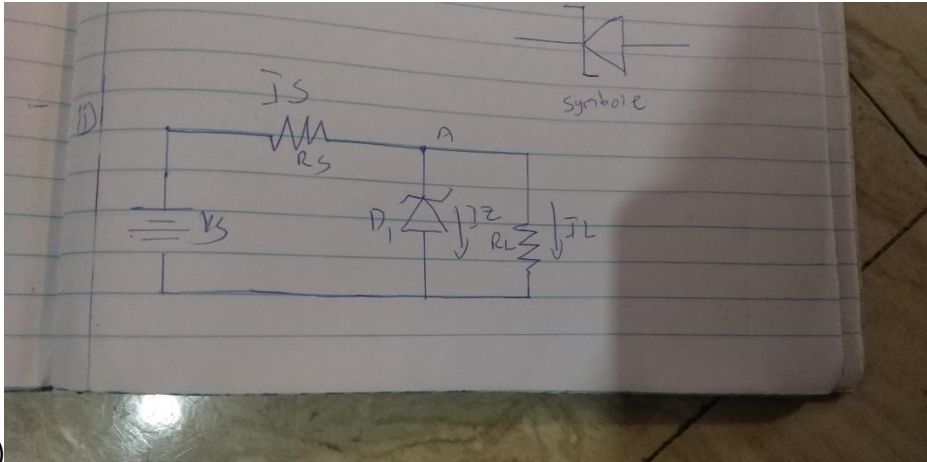 Symbole
IS
ii)
RS
A
VS
D1
IZ
RL
IL